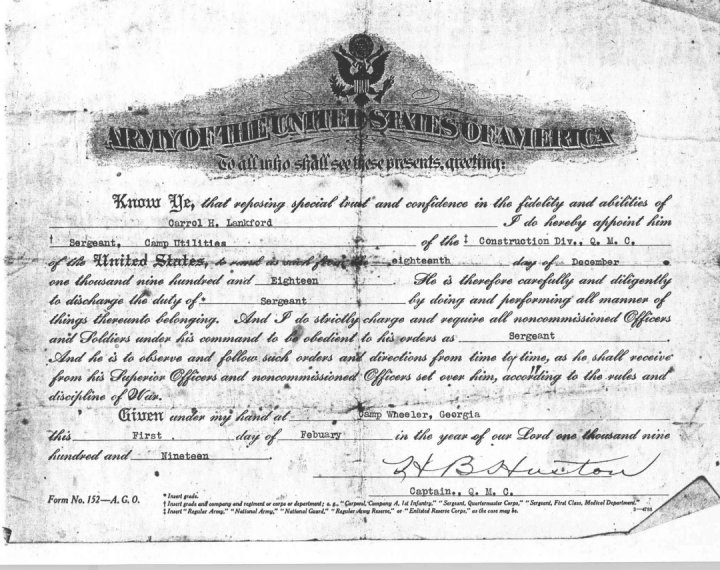 ARMY OF THE UNITED STATES OF AMERICA
To all who shall see these presents, greeting:
Know Ye, that reposing special trust and confidence in the fidelity and abilities of
Carrol H. Lankford I do hereby appoint him
† Sergeant, Camp Utilities of the ‡ Construction Div., Q. M. C.
of the United States, to rank as such from the eighteenth day of December
one thousand nine hundred and Eighteen He is therefore carefully and diligently
to discharge the duty of * Sergeant by doing and performing all manner of
things thereunto belonging. And I do strictly charge and require all noncommissioned Officers
and Soldiers under his command to be obedient to his orders as Sergeant.
And he is to observe and follow such orders and directions from time to time, as he shall receive
from his Superior Officers and noncommissioned Officers set over him, according to the rules and
discipline of War.
Given under my hand at Camp Wheeler, Georgia
this First day of Febuary in the year of our Lord one thousand nine
hundred and Nineteen
H B Huston
Captain., Q. M. C.
Form No. 152—A. G. O.
* Insert grade.
† Insert grade and company and regiment or corps or department; e. g., "Corporal, Company A, 1st Infantry," "Sergeant, Quartermaster Corps," "Sergeant, First Class, Medical Department."
‡ Insert "Regular Army," "National Army," "National Guard," "Regular Army Reserve," or "Enlisted Reserve Corps," as the case may be.